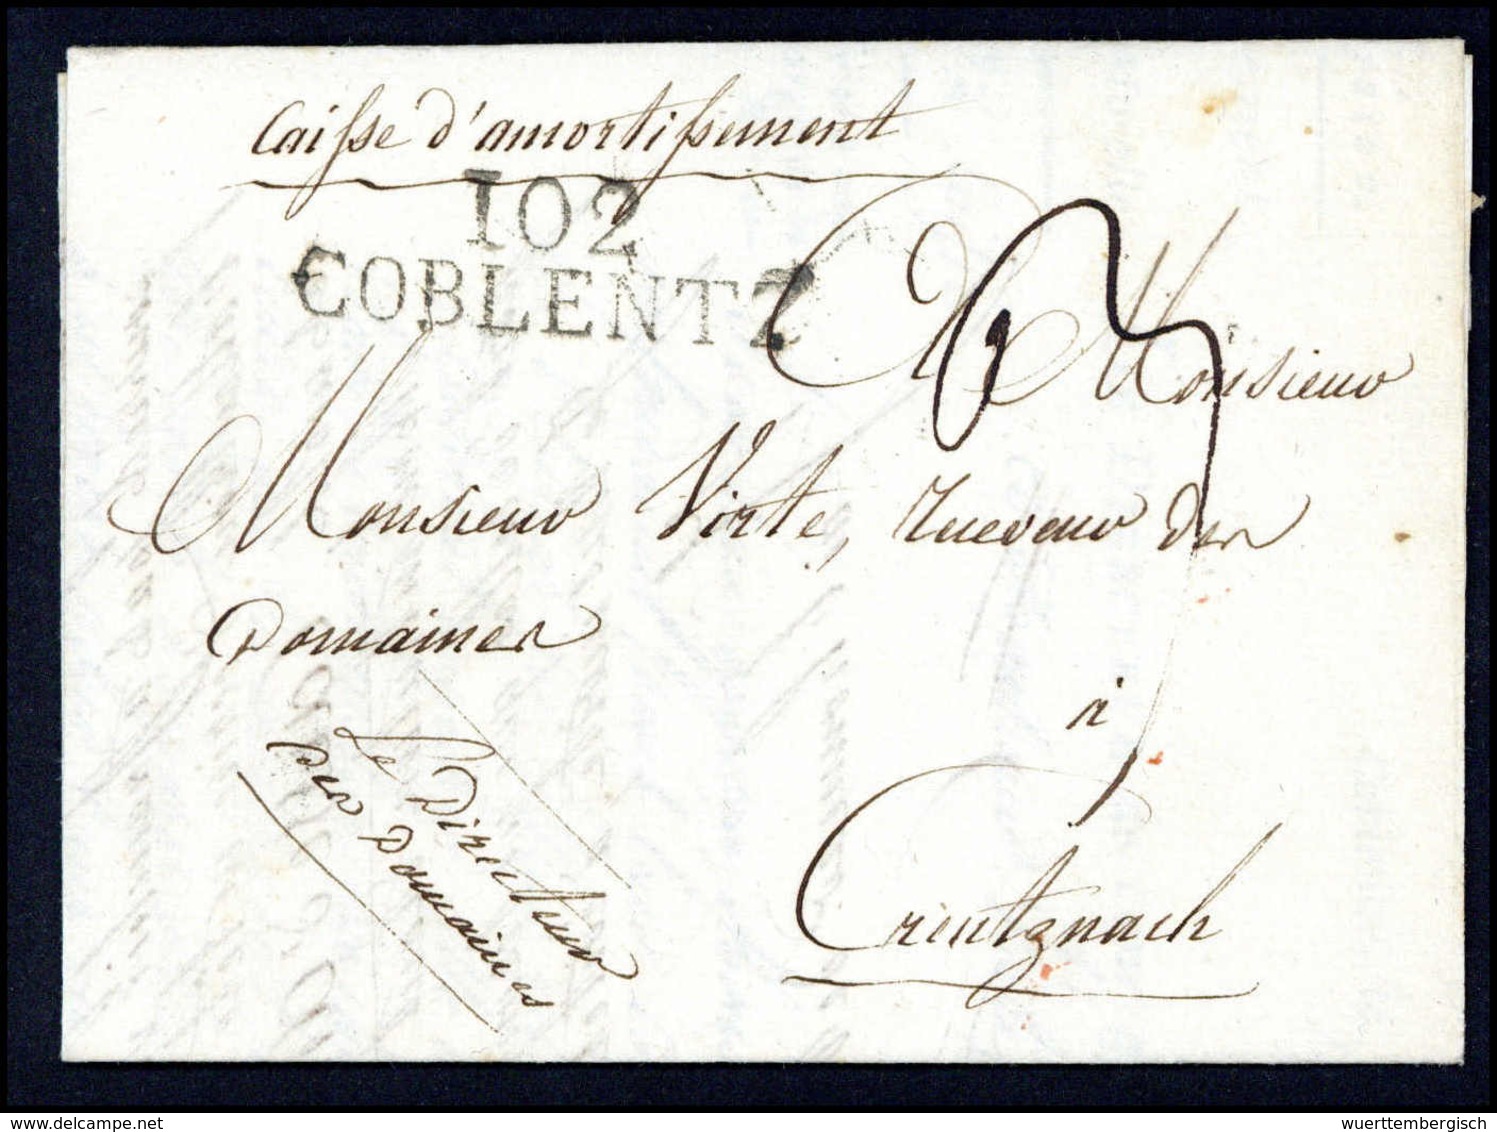 Caisse d'amortissement
102
COBLENTZ
A Monsieur
Monsieur Virte, receveur des
Domaines
à
Creutznach
Le Directeur
des Domaines
delcampe.net
wuerttembergisch